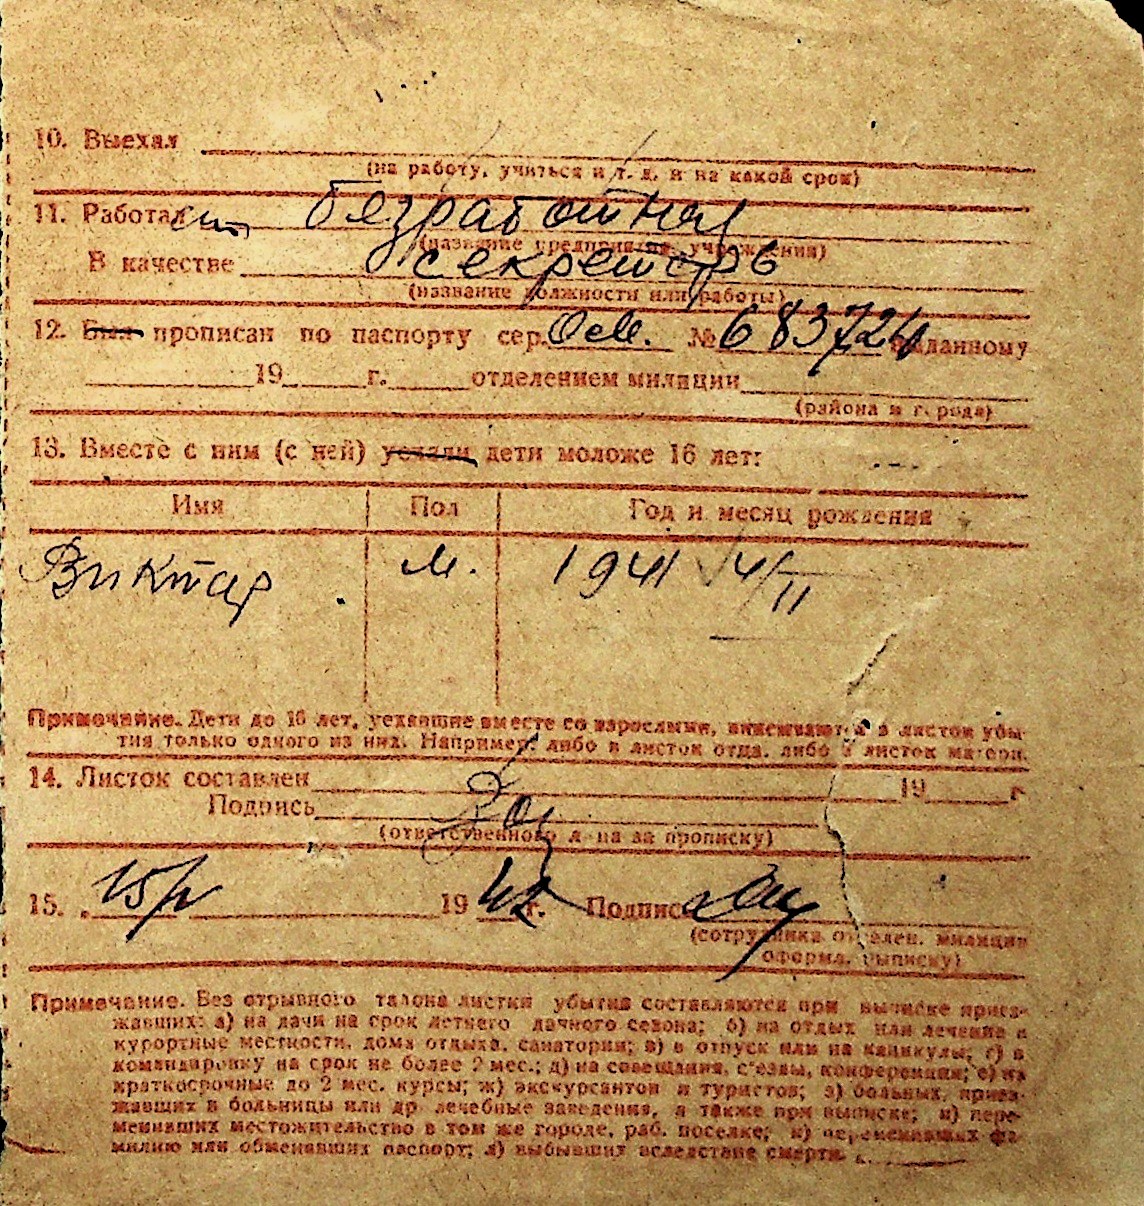 10. Выехал
(на работу, учиться и т. д. и на какой срок)
11. Работал безработная
(название предприятия, учреждения)
В качестве секретарь
(название должности или работы)
12. Был прописан по паспорту сер. № 683724 выданному
19 г. отделением милиции
(района и города)
13. Вместе с ним (с ней) уехали дети моложе 16 лет:
Имя Пол Год и месяц рождения
Виктар м. 1941 4/II
Примечание. Дети до 16 лет, уехавшие вместе со взрослыми, вписываются в листок убы-
тия только одного из них. Например: либо в листок отца, либо в листок матери.
14. Листок составлен 19 г.
Подпись
(ответственного л-ца за прописку)
15. 19 42 г. Подпись
(сотрудника отделен. милиции
оформл. выписку)
Примечание. Без отрывного талона листки убытия составляются при выписке приез-
жавших: а) на дачи на срок летнего дачного сезона; б) на отдых или лечение в
курортные местности, дома отдыха, санатории; в) в отпуск или на каникулы; г) в
командировку на срок не более 2 мес.; д) на совещания, с'езды, конференции; е) на
краткосрочные до 2 мес. курсы; ж) экскурсантов и туристов; з) больных, приез-
жавших в больницы или др. лечебные заведения, а также при выписке; и) пере-
менивших местожительство в том же городе, раб. поселке; к) переменивших фа-
милию или обменявших паспорт; л) выбывших вследствие смерти.